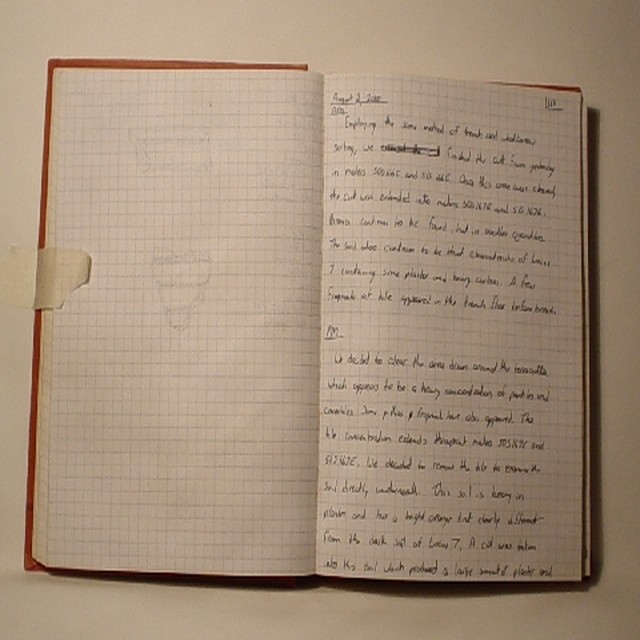 August 2, 2000
Employing the same method of trench and
sorting, we finished the cut from yesterday
in meters 505 166E and 515 166E. Once this area was cleared,
the cut was extended into meters 505 167E and 515 167E.
Bronze continues to be found, but in smaller quantities.
The soil also continues to be that characteristic of Locus
7 containing some plaster and heavy carbon. A few
fragments of tile appeared in the trench floor before break.
PM
We decided to clear the area down around the terracotta
which appears to be a heavy concentration of pan tiles and
cover tiles. Some pithos fragments have also appeared. The
tile concentration extends throughout meters 505 167E and
515 167E. We decided to remove the tile to examine the
soil directly underneath. This soil is heavy in
plaster and has a bright orange tint clearly different
from the dark soil of Locus 7. A cut was taken
into this soil which produced a large amount of plaster and